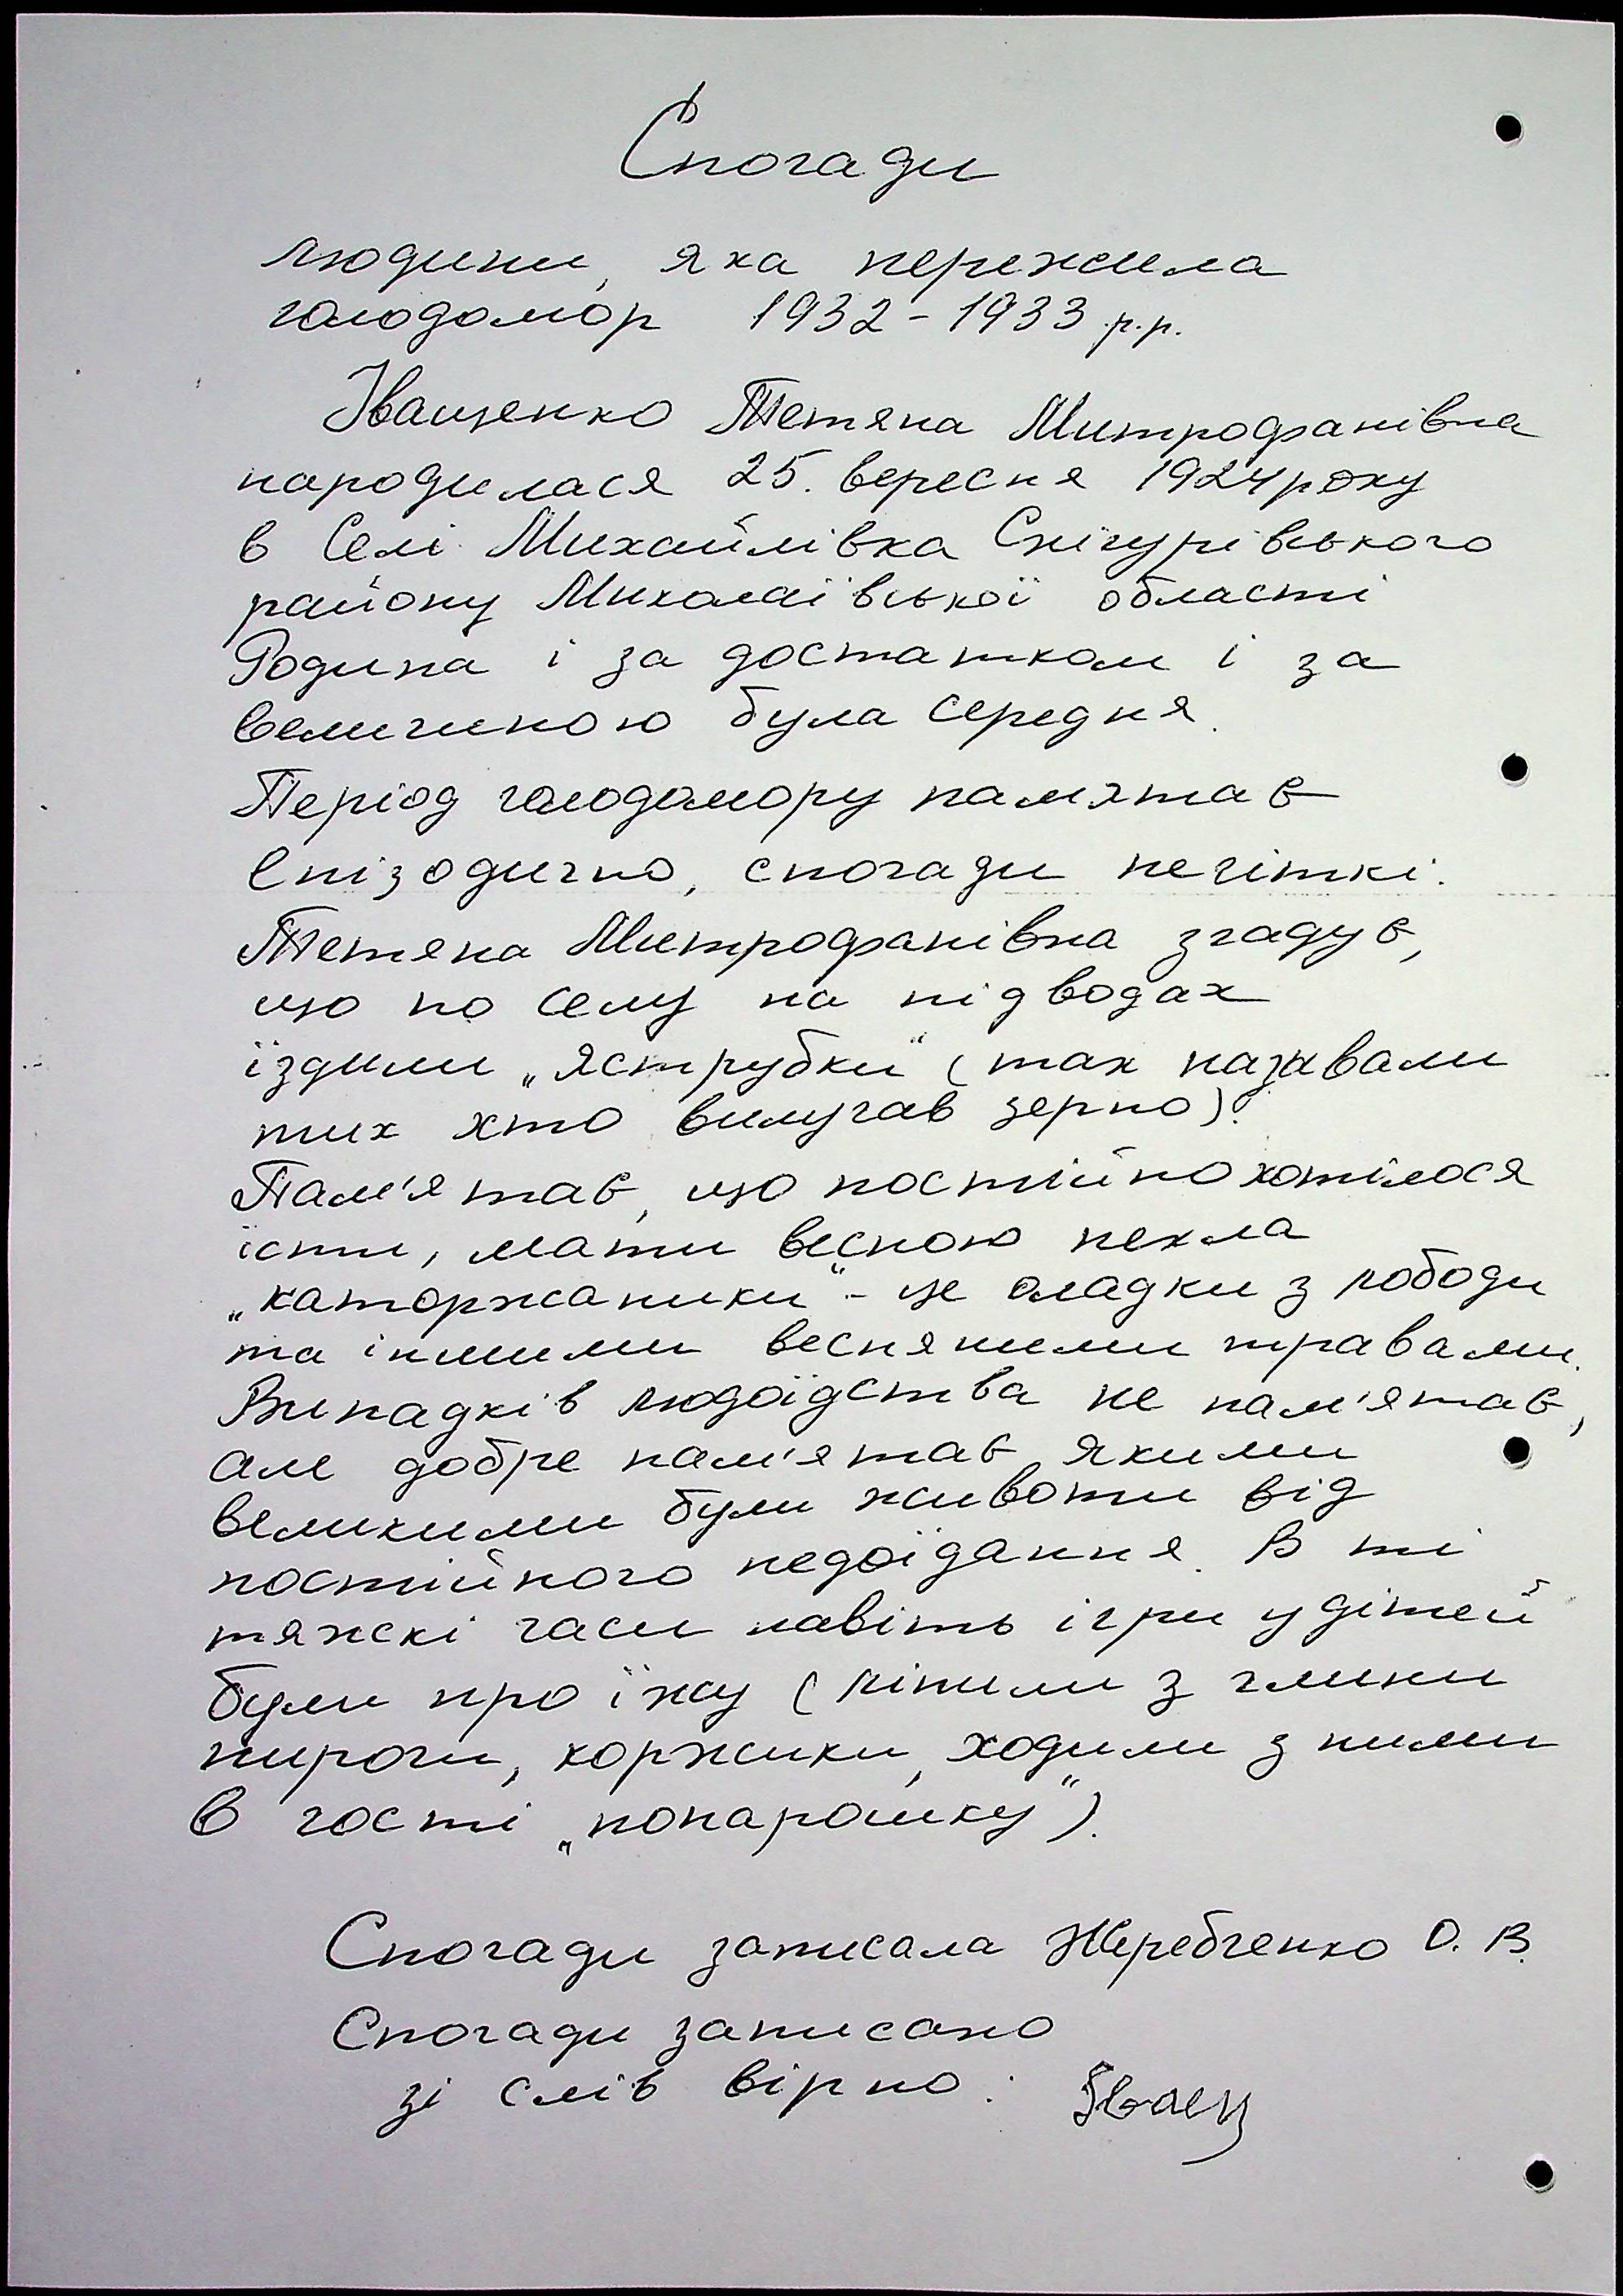 Спогади
людини, яка пережила
голодомор 1932-1933 р.р.
Іващенко Тетяна Митрофанівна
народилася 25. вересня 1924 року
в Селі Михайлівка Снігурівського
району Миколаївської області
Родина і за достатком і за
величиною була середня.
Період голодомору памятає
епізодично, спогади нечіткі.
Тетяна Митрофанівна згадує,
що по селу на підводах
їздили „яструбки" (так називали
тих хто вилучав зерно).
Пам'ятає, що постійно хотілося
їсти, мати весною пекла
„каторжаники" - це оладки з лободи
та іншими весняними травами.
Випадків людоїдства не пам'ятає,
але добре пам'ятає якими
великими були животи від
постійного недоїдання. В ті
тяжкі часи навіть ігри у дітей
були про їжу (ліпили з глини
пироги, коржики, ходили з ними
в гості „понарошку").
Спогади записала Жеребченко О. В.
Спогади записано
зі слів вірно: